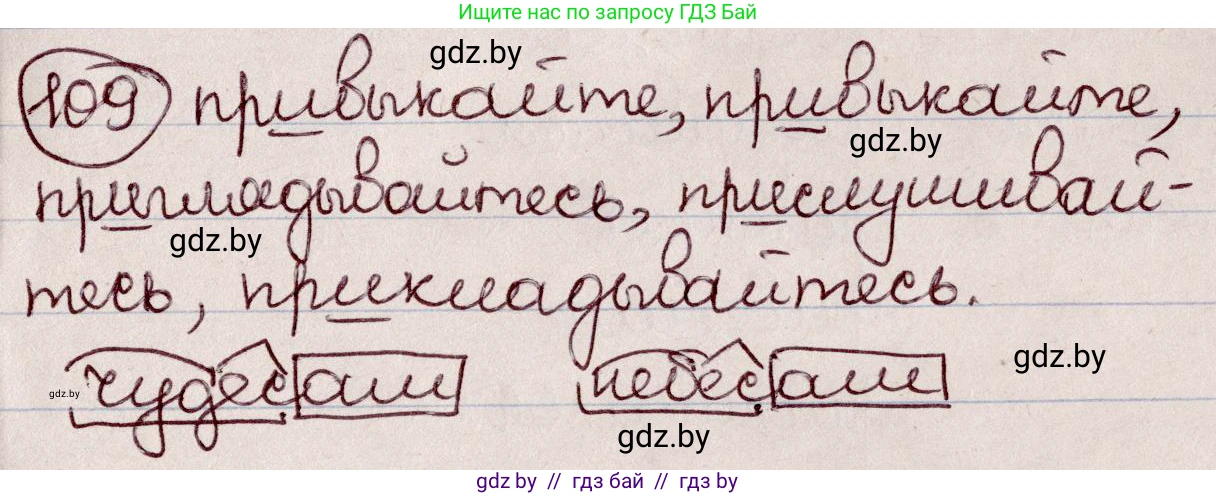 Ищите нас по запросу ГДЗ Бай
gdz.by
109 привыкайте, привыкайте,
gdz.by
приглядывайтесь, прислушивай-
gdz.by
тесь, прикладывайтесь.
gdz.by
gdz.by
чудесам небесам
gdz.by
gdz.by // гдз бай // гдз by